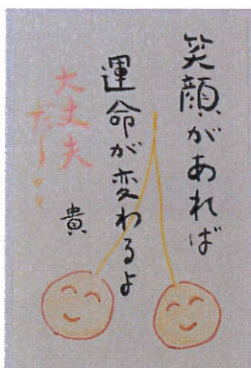 笑顔があれば
運命が変わるよ
貴
大丈夫
だよ～